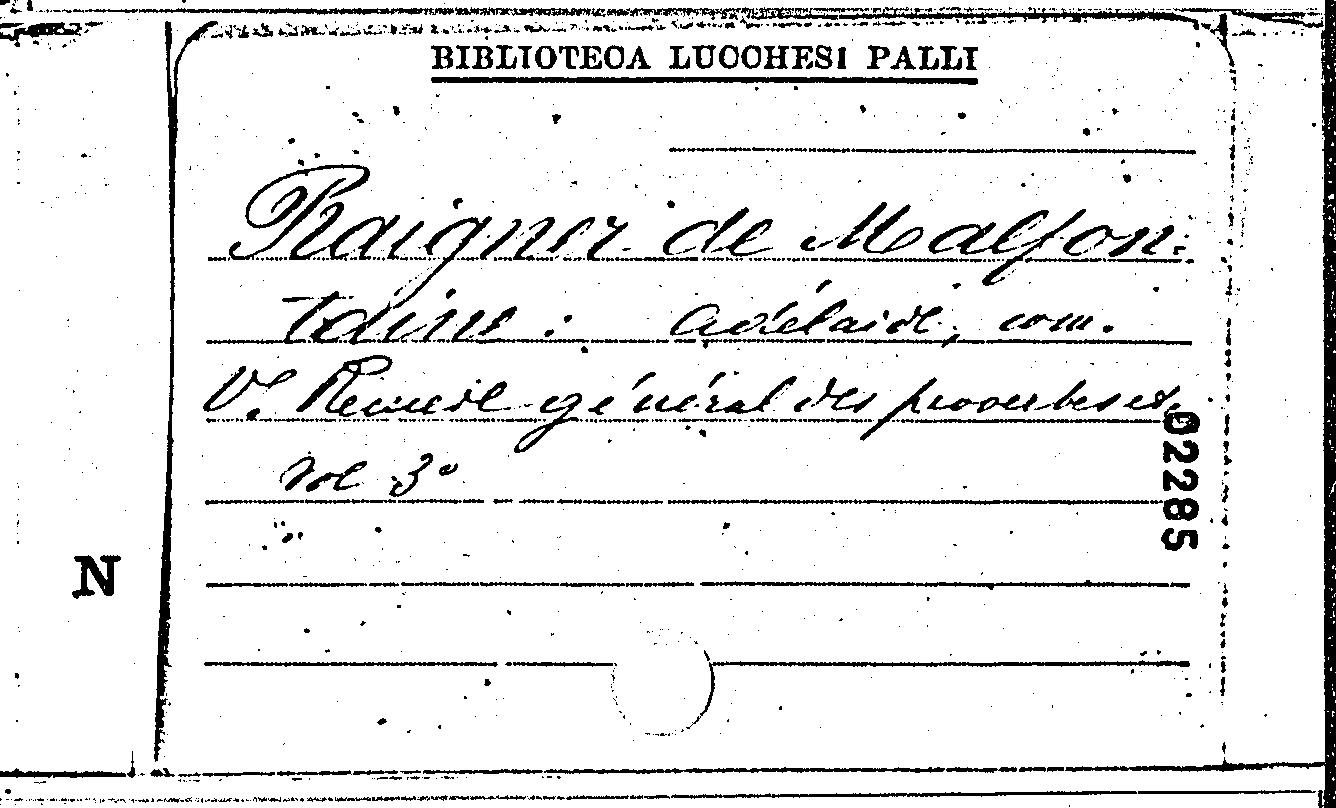 BIBLIOTECA LUCCHESI PALLI
Raigner de Malfon-
taine: Adélaide, com.
V. Recueil général des proverbes etc.
vol 3°
02285
N